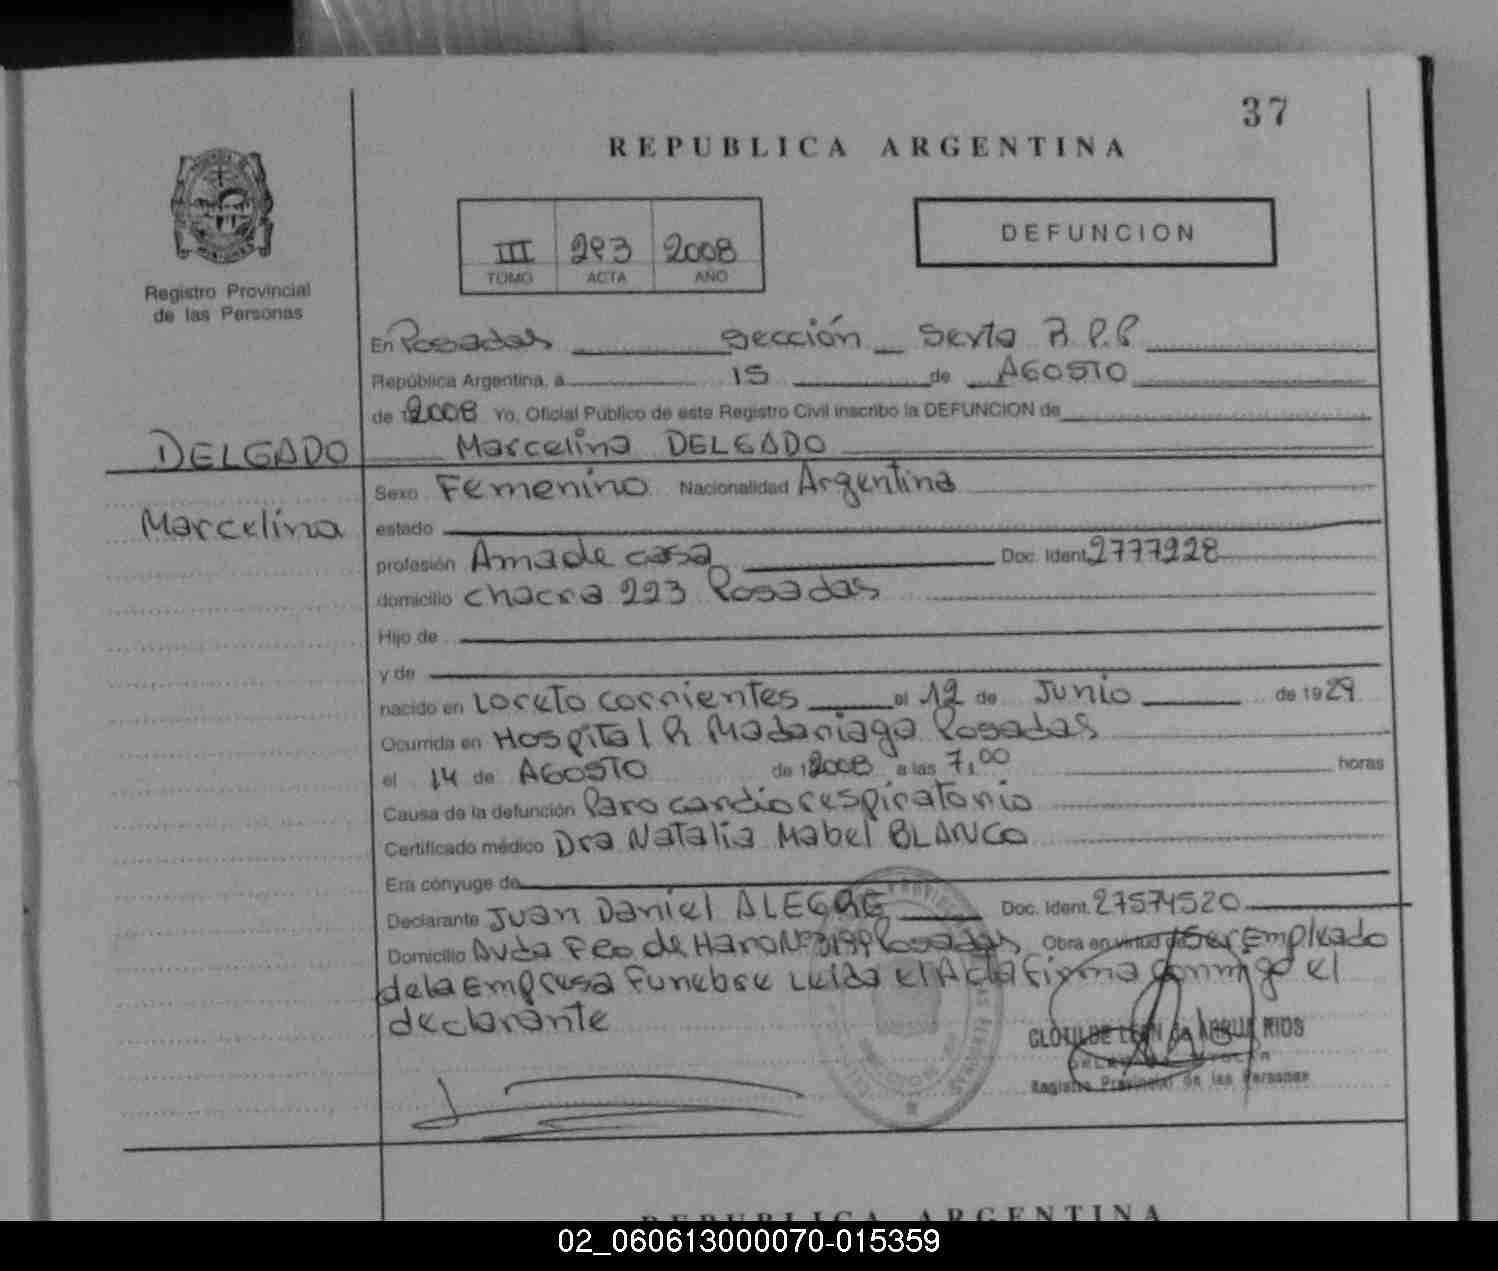 37
REPUBLICA ARGENTINA
III 293 2008
TOMO ACTA AÑO
DEFUNCION
Registro Provincial
de las Personas
En Posadas sección Sexta R.P.P
República Argentina, a 15 de AGOSTO
de 2008 Yo, Oficial Público de este Registro Civil inscribo la DEFUNCION de
DELGADO Marcelina DELGADO
Sexo Femenino Nacionalidad Argentina
Marcelina estado
profesión Ama de casa Doc. Ident. 2777928
domicilio chacra 223 Posadas
Hijo de
y de
nacido en Loreto corrientes el 12 de Junio de 1929
Ocurrida en Hospital R Madariaga Posadas
el 14 de AGOSTO de 2008 a las 7,00 horas
Causa de la defunción Paro cardiorespiratorio
Certificado médico Dra Natalia Mabel BLANCO
Era cónyuge de
Declarante Juan Daniel ALEGRE Doc. Ident. 27574520
Domicilio Avda Fco de Haro Nº Posadas Obra en virtud de Ser Empleado
de la Empresa Funebre Leida el Acta firma conmigo el
declarante
CLOTILDE LEON de RIOS
Registro Provincial de las Personas
REPUBLICA ARGENTINA
02_060613000070-015359